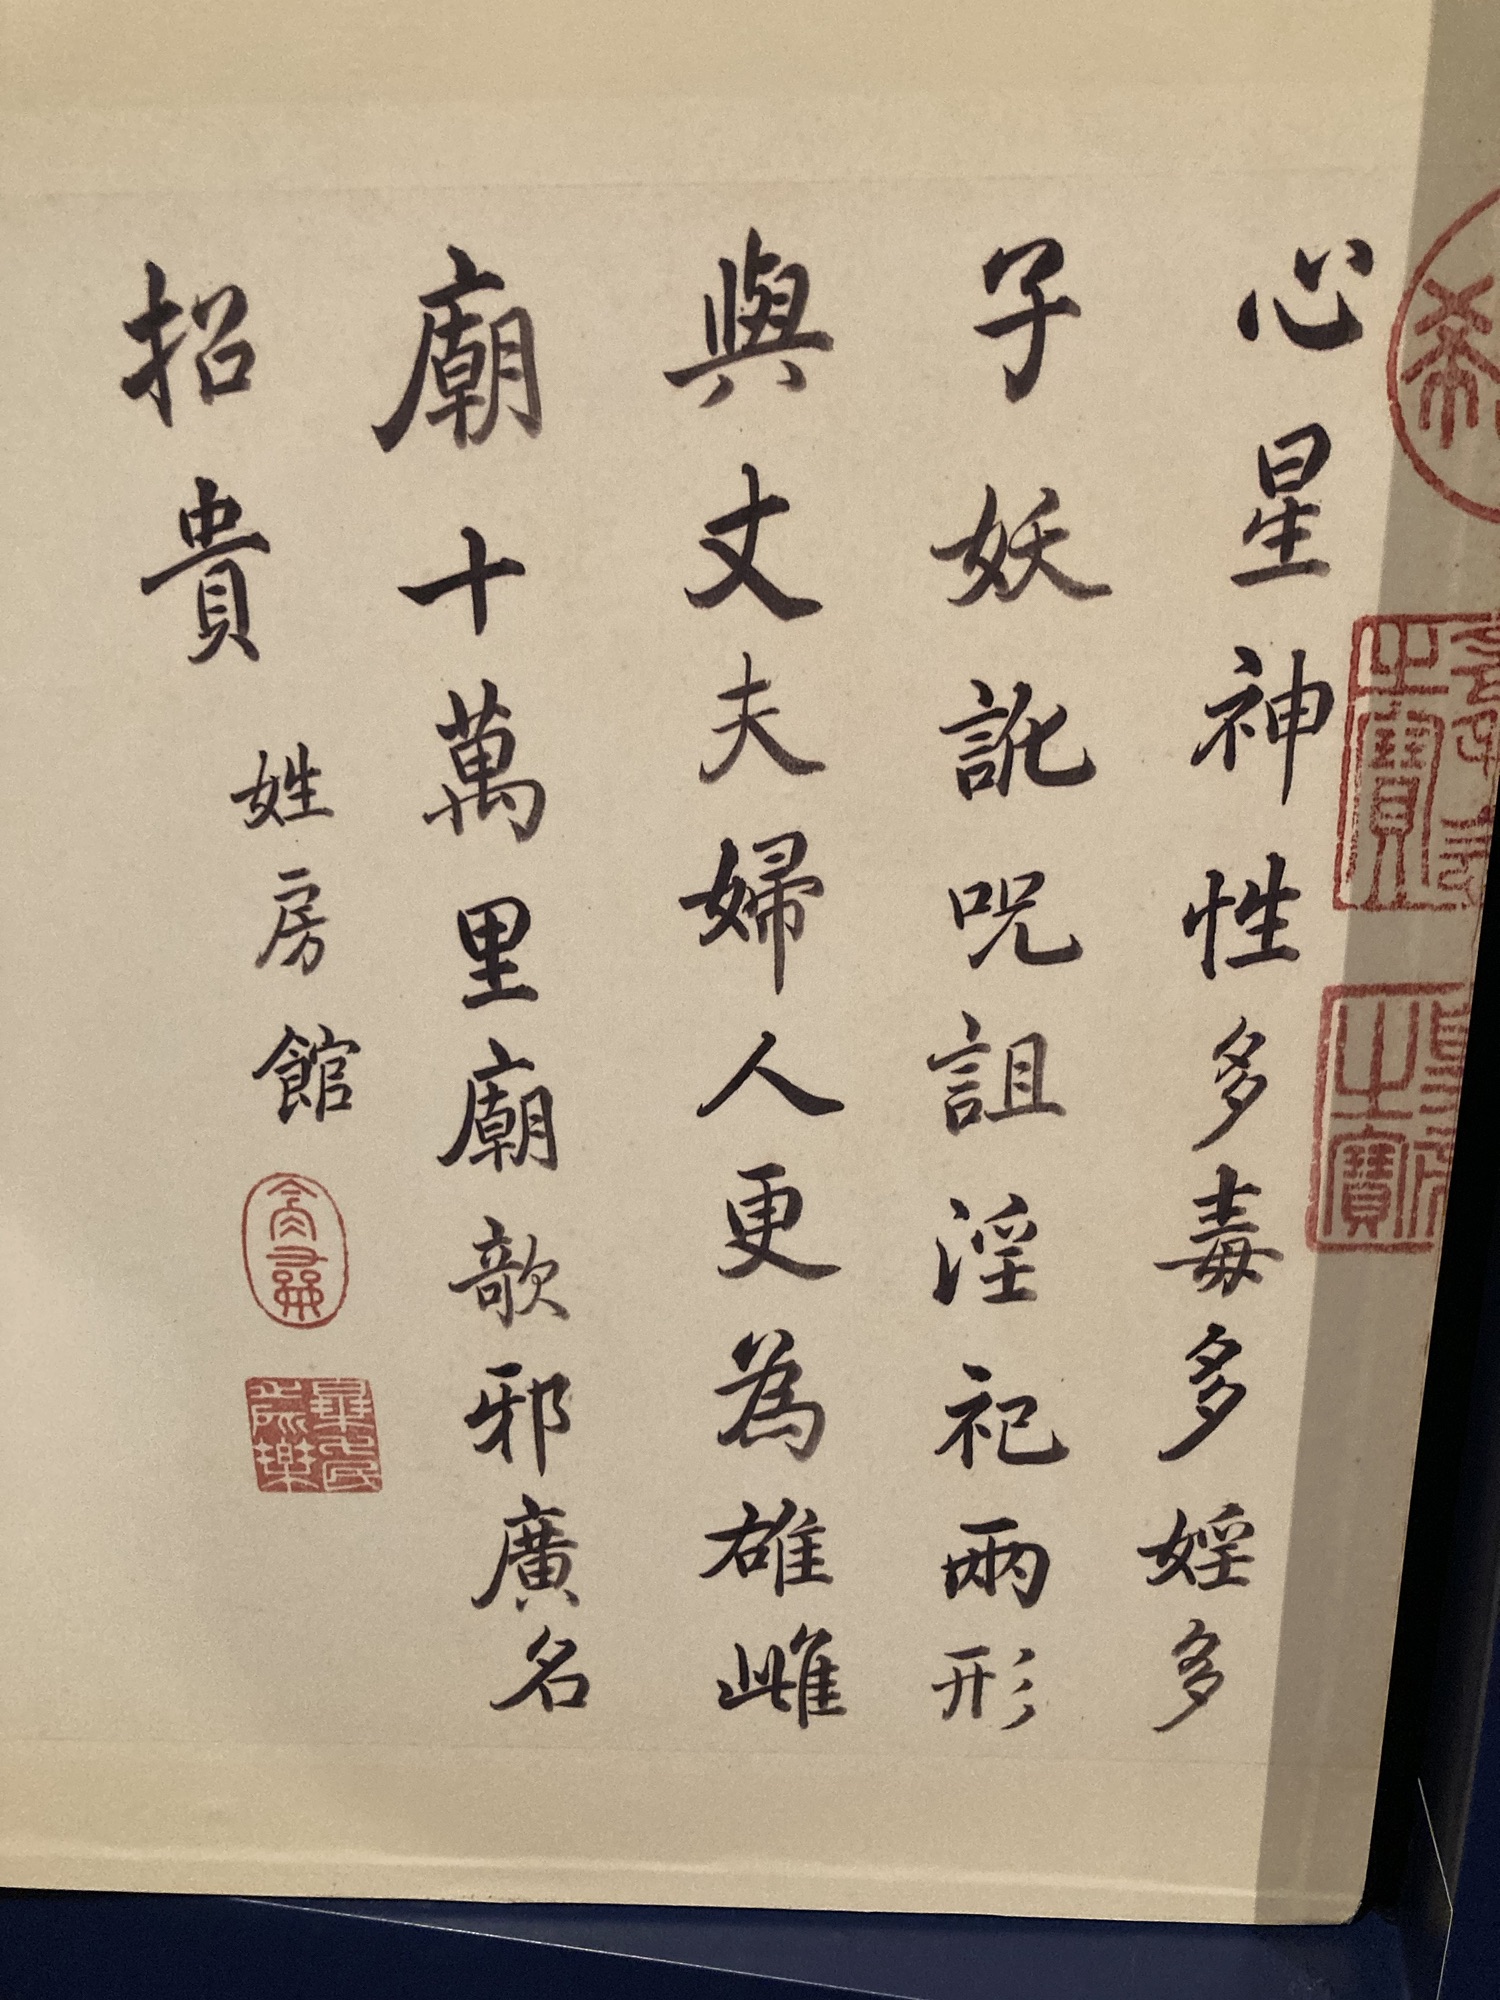 心星神性多毒多婬多
子妖訛呪詛淫祀兩形
與丈夫婦人更為雄雌
廟十萬里廟歆邪廣名
招貴 姓房館